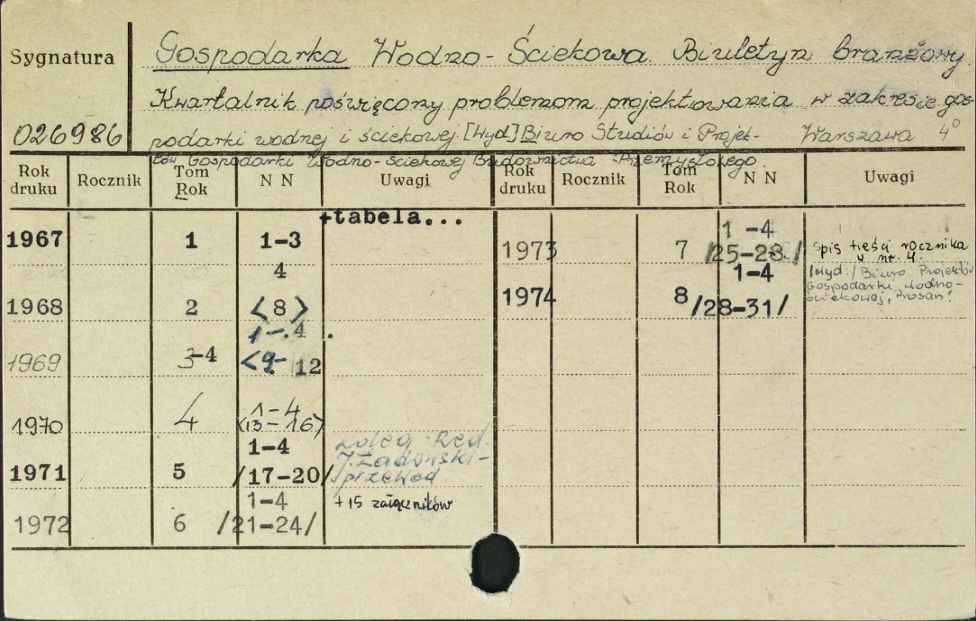 Sygnatura
026986
Gospodarka Wodno-Ściekowa. Biuletyn branżowy.
Kwartalnik poświęcony problemom projektowania w zakresie gos-
podarki wodnej i ściekowej. [Wyd.] Biuro Studiów i Projek- Warszawa 4°
tów Gospodarki Wodno-Ściekowej Budownictwa Przemysłowego
Rok druku Rocznik Tom Rok N N Uwagi Rok druku Rocznik Tom Rok N N Uwagi
+tabela...
1967 1 1-3
4
1968 2 <8>
1-.4 .
1969 3-4 <9- 12
1970 4 1-4
<13-16>
1-4
1971 5 /17-20/ Red.
J. Żadowski-
przewod
1-4 +15 załączników
1972 6 /21-24/
1-4
1973 7 /25-28/ spis treści rocznika
w nr. 4.
1-4 [Wyd.] Biuro Projektów
1974 8 /28-31/ Gospodarki Wodno-
Ściekowej, Prosan.